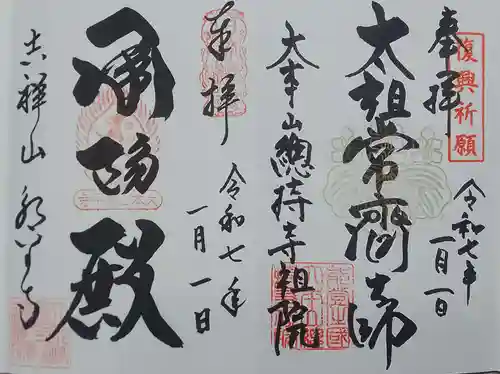 奉拝
復興祈願
令和七年
一月一日
太祖常済大師
大本山總持寺祖院
奉拝
令和七年
一月一日
承陽殿
吉祥山 永平寺